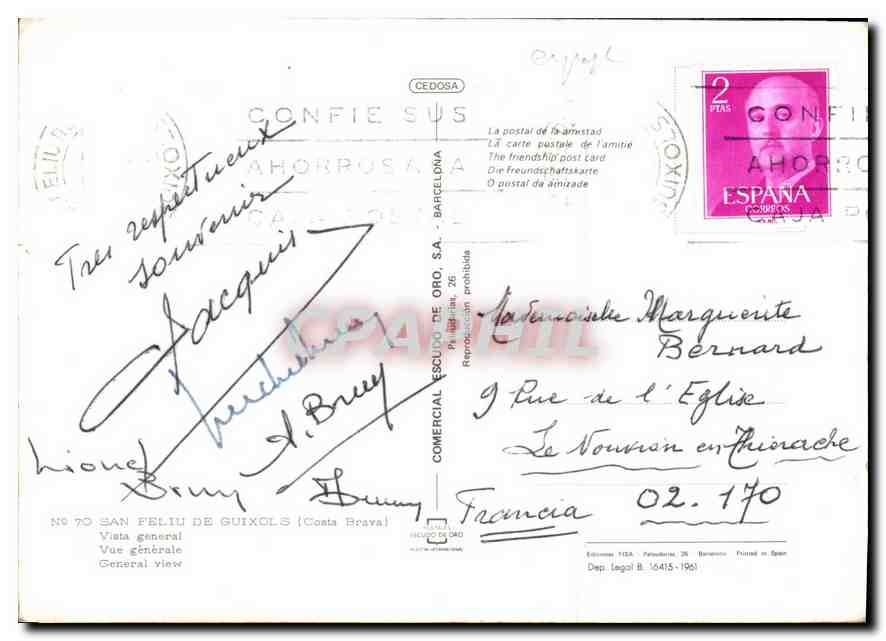 CEDOSA
CONFIE SUS
AHORROS A LA
CAJA
FELIU
GUIXOLS
CONFIE
AHORROS
CAJA
2
PTAS
ESPAÑA
CORREOS
La postal de la amistad
La carte postale de l'amitié
The friendship post card
Die Freundschaftskarte
O postal da amizade
Tres respectueux
souvenir
Jacquis
Lionel
Bruy
A. Bruy
COMERCIAL ESCUDO DE ORO, S.A. - BARCELONA
Palaudarias, 26
Reproducción prohibida
CPARHIL
Mademoiselle Marguerite
Bernard
9 Rue de l'Eglise
Le Nouvion en Thierache
02.170
Francia
Nº 70 SAN FELIU DE GUIXOLS (Costa Brava)
Vista general
Vue générale
General view
ESCUDO DE ORO
Ediciones FISA - Palaudarias, 26 - Barcelona Printed in Spain
Dep. Legal B. 16415-1961